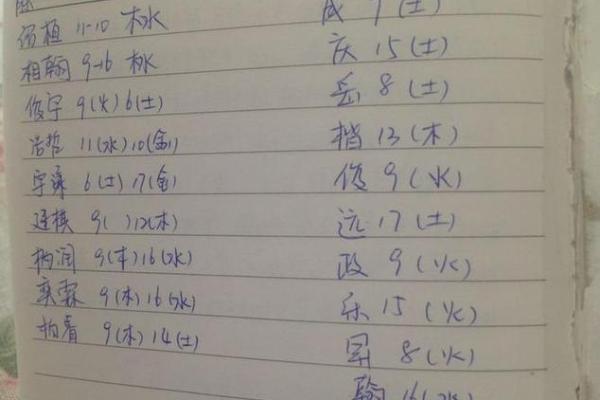 植 11-10 木水
相翰 9-16 木水
俊宇 9(火)6(土)
浩哲 11(水)10(金)
宇 6(土)17(金)
建棋 9( )12(木)
柄润 9(木)16(水)
奕霖 9(木)16(水)
柏睿 9(木)14(土)
成 7 (土)
庆 15 (土)
岳 8 (土)
楷 13 (木)
俊 9 (火)
远 17 (土)
政 9 (火)
乐 15 (火)
昇 8 (火)
翰 16(水)